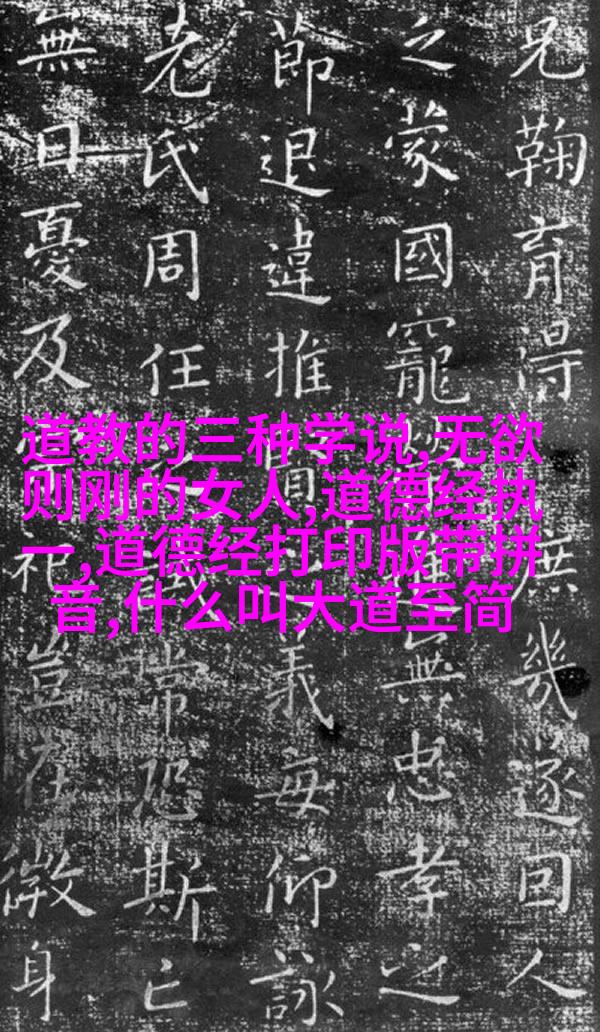 兄鞠育得無幾遂回人
之蒙國寵無忠孝之
節退違推義每仰詠
老氏周任常恐斯亡
無日憂及祀豈在微身
道教的三种学说,无欲
则刚的女人,道德经执
一,道德经打印版带拼
音,什么叫大道至简